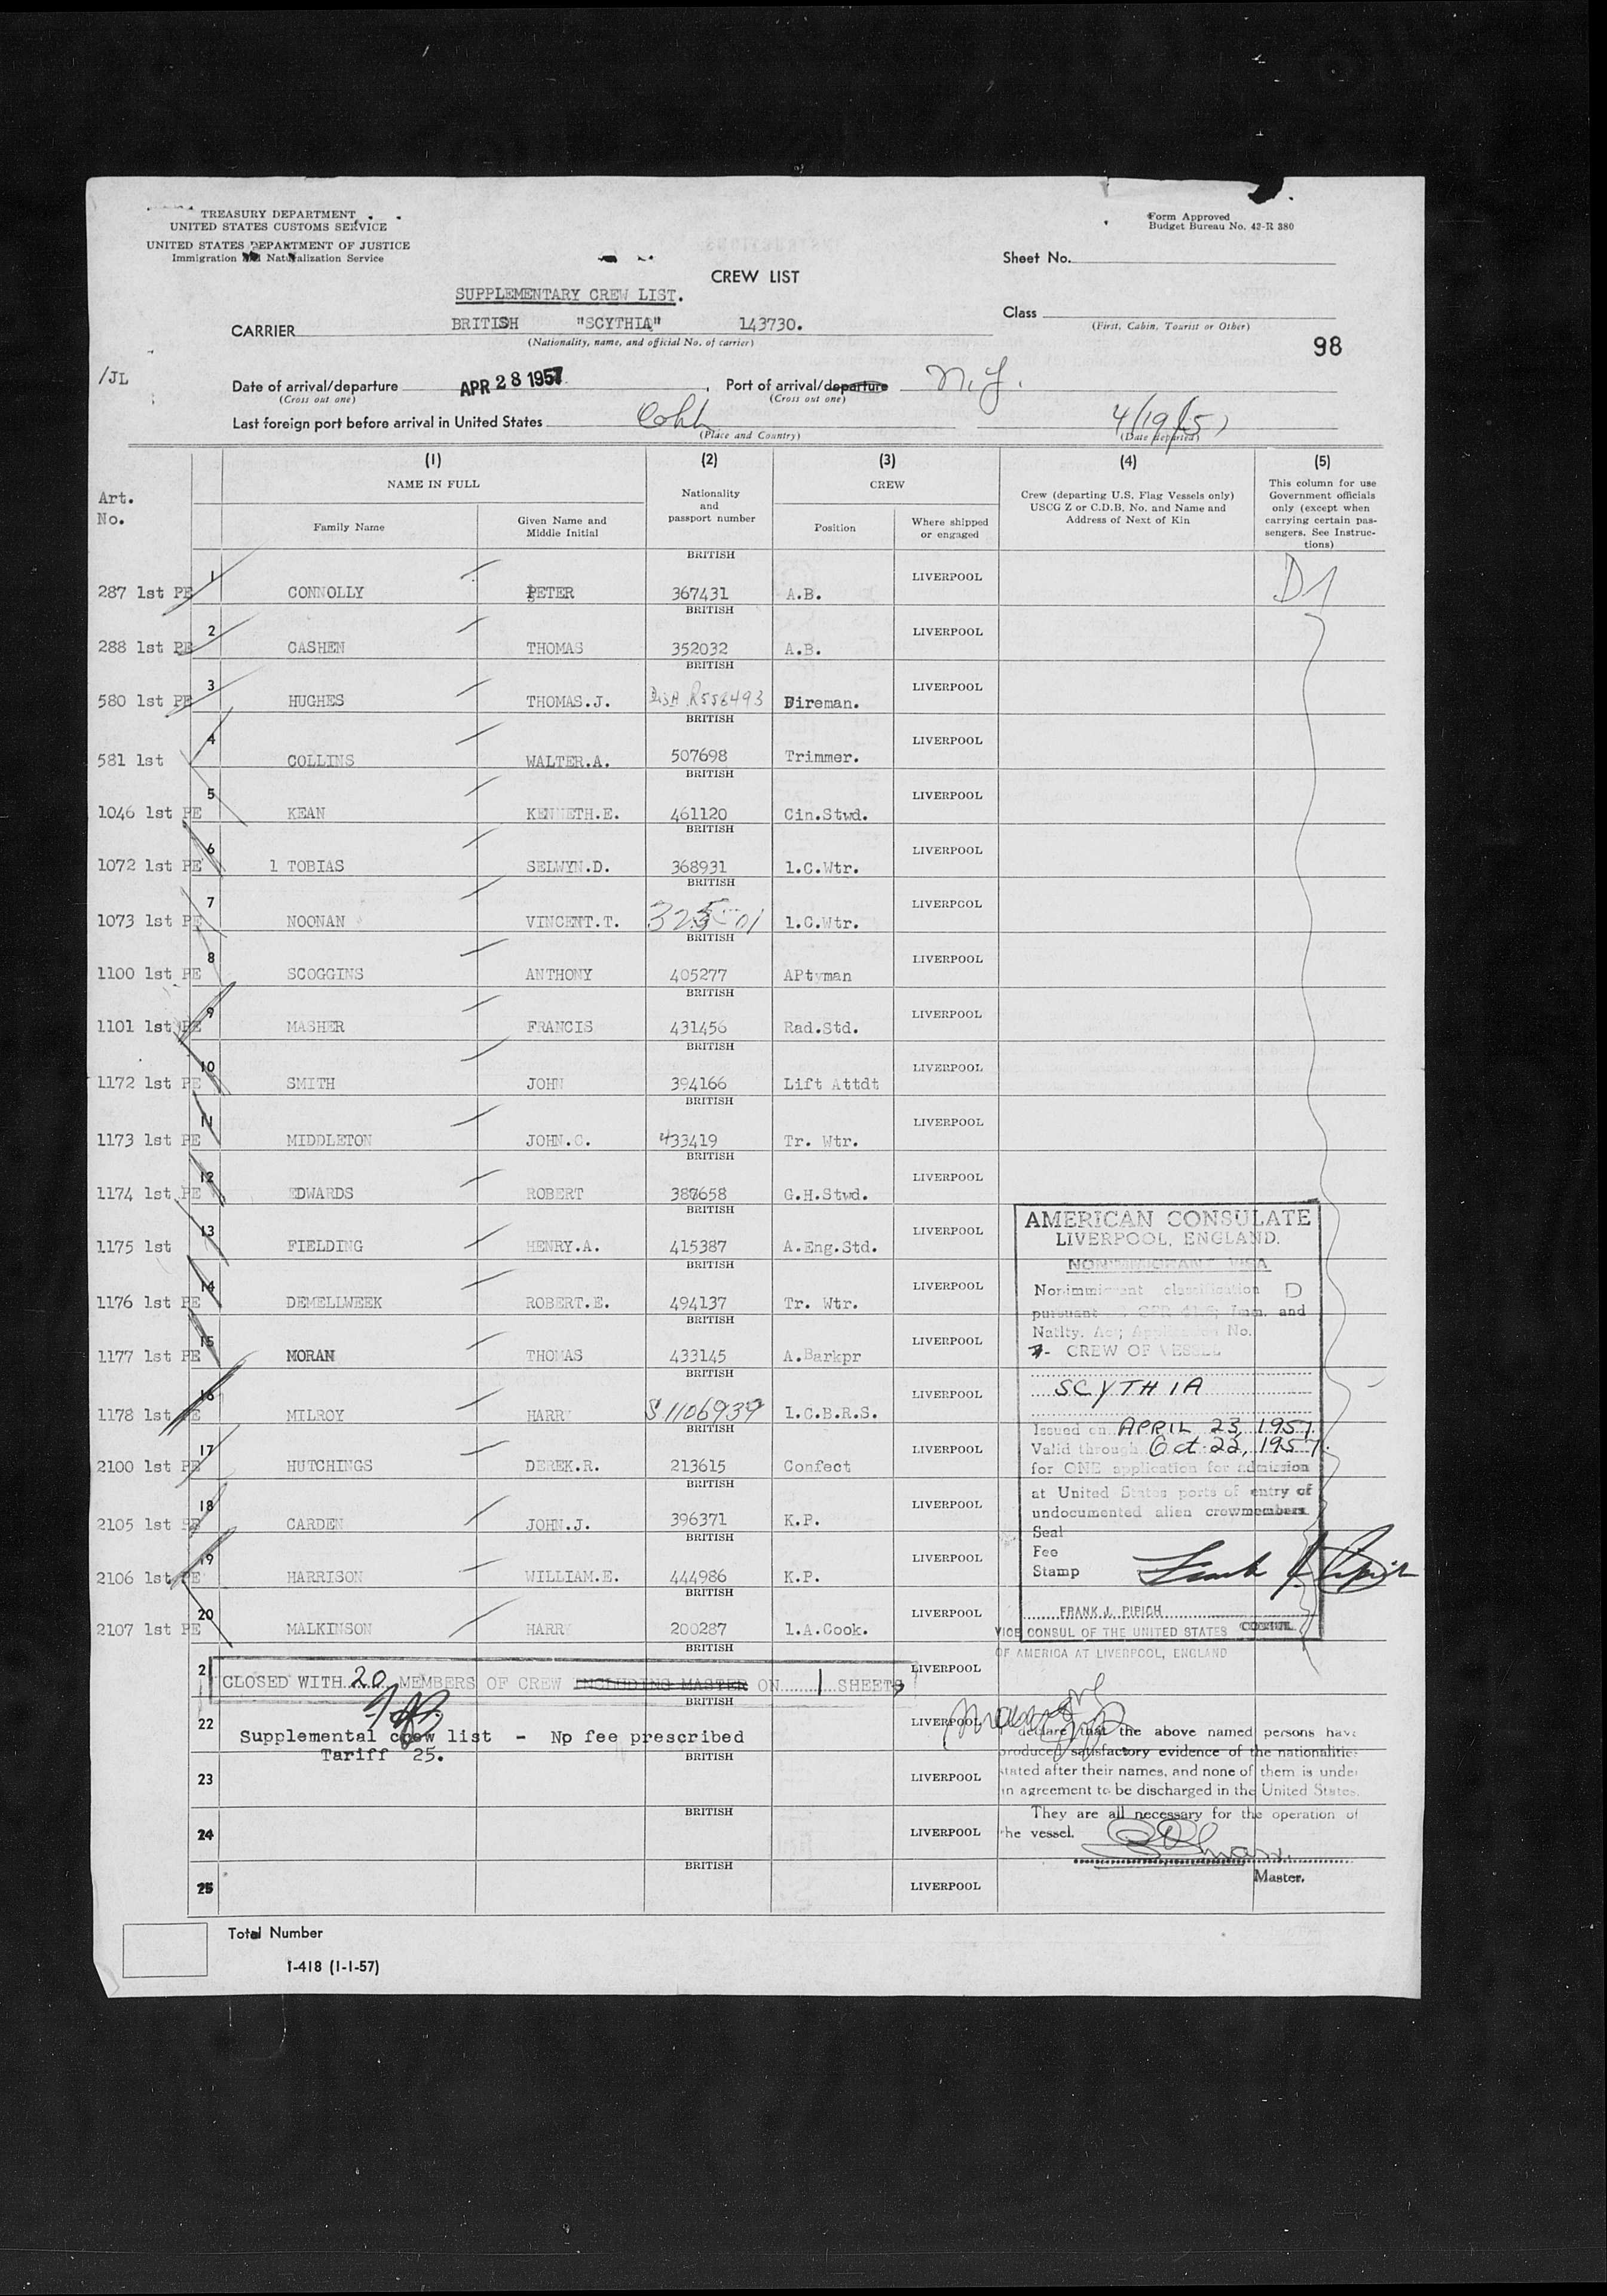 TREASURY DEPARTMENT
UNITED STATES CUSTOMS SERVICE
UNITED STATES DEPARTMENT OF JUSTICE
Immigration and Naturalization Service
Form Approved
Budget Bureau No. 43-R 380
Sheet No.
CREW LIST
SUPPLEMENTARY CREW LIST.
Class
(First, Cabin, Tourist or Other)
CARRIER BRITISH "SCYTHIA" 143730.
(Nationality, name, and official No. of carrier)
98
/JL
Date of arrival/departure APR 28 1957, Port of arrival/departure N.Y.
(Cross out one) (Cross out one)
Last foreign port before arrival in United States Cobh 4/19/57
(Place and Country) (Date departed)
(1) (2) (3) (4) (5)
Art. No.
NAME IN FULL
Family Name
Given Name and Middle Initial
Nationality and passport number
CREW
Position
Where shipped or engaged
Crew (departing U.S. Flag Vessels only) USCG Z or C.D.B. No. and Name and Address of Next of Kin
This column for use Government officials only (except when carrying certain passengers. See Instructions)
287 1st PE 1 CONNOLLY PETER BRITISH 367431 A.B. LIVERPOOL D1
288 1st PE 2 CASHEN THOMAS BRITISH 352032 A.B. LIVERPOOL
580 1st PE 3 HUGHES THOMAS.J. BRITISH DisA R556493 Fireman. LIVERPOOL
581 1st 4 COLLINS WALTER.A. BRITISH 507698 Trimmer. LIVERPOOL
1046 1st PE 5 KEAN KENNETH.E. BRITISH 461120 Cin.Stwd. LIVERPOOL
1072 1st PE 6 1 TOBIAS SELWYN.D. BRITISH 368931 1.C.Wtr. LIVERPOOL
1073 1st PE 7 NOONAN VINCENT.T. BRITISH 1.C.Wtr. LIVERPOOL
1100 1st PE 8 SCOGGINS ANTHONY BRITISH 405277 APtyman LIVERPOOL
1101 1st PE 9 MASHER FRANCIS BRITISH 431456 Rad.Std. LIVERPOOL
1172 1st PE 10 SMITH JOHN BRITISH 394166 Lift Attdt LIVERPOOL
1173 1st PE 11 MIDDLETON JOHN.C. BRITISH 433419 Tr. Wtr. LIVERPOOL
1174 1st PE 12 EDWARDS ROBERT BRITISH 387658 G.H.Stwd. LIVERPOOL
1175 1st 13 FIELDING HENRY.A. BRITISH 415387 A.Eng.Std. LIVERPOOL
1176 1st PE 14 DEMELLWEEK ROBERT.E. BRITISH 494137 Tr. Wtr. LIVERPOOL
1177 1st PE 15 MORAN THOMAS BRITISH 433145 A.Barkpr LIVERPOOL
1178 1st PE 16 MILROY HARRY BRITISH S1106939 1.C.B.R.S. LIVERPOOL
2100 1st PE 17 HUTCHINGS DEREK.R. BRITISH 213615 Confect LIVERPOOL
2105 1st PE 18 CARDEN JOHN.J. BRITISH 396371 K.P. LIVERPOOL
2106 1st PE 19 HARRISON WILLIAM.E. BRITISH 444986 K.P. LIVERPOOL
2107 1st PE 20 MALKINSON HARRY BRITISH 200287 1.A.Cook. LIVERPOOL
AMERICAN CONSULATE
LIVERPOOL, ENGLAND.
NONIMMIGRANT VISA
Nonimmigrant classification D
pursuant CFR 41.5; Imm. and
Natlty. Act; Application No.
CREW OF VESSEL
SCYTHIA
Issued on APRIL 23, 1957.
Valid through Oct. 22, 1957.
for ONE application for admission
at United States ports of entry of
undocumented alien crewmembers
Seal
Fee
Stamp
FRANK J. PIPICH
VICE CONSUL OF THE UNITED STATES CONSUL
OF AMERICA AT LIVERPOOL, ENGLAND
21 BRITISH LIVERPOOL
CLOSED WITH 20 MEMBERS OF CREW INCLUDING MASTER ON 1 SHEETS
22 BRITISH LIVERPOOL
Supplemental crew list - No fee prescribed
Tariff 25.
23 BRITISH LIVERPOOL
24 BRITISH LIVERPOOL
25 BRITISH LIVERPOOL
declare that the above named persons have
produced satisfactory evidence of the nationalities
stated after their names, and none of them is under
an agreement to be discharged in the United States.
They are all necessary for the operation of
the vessel.
Master.
Total Number
I-418 (1-1-57)